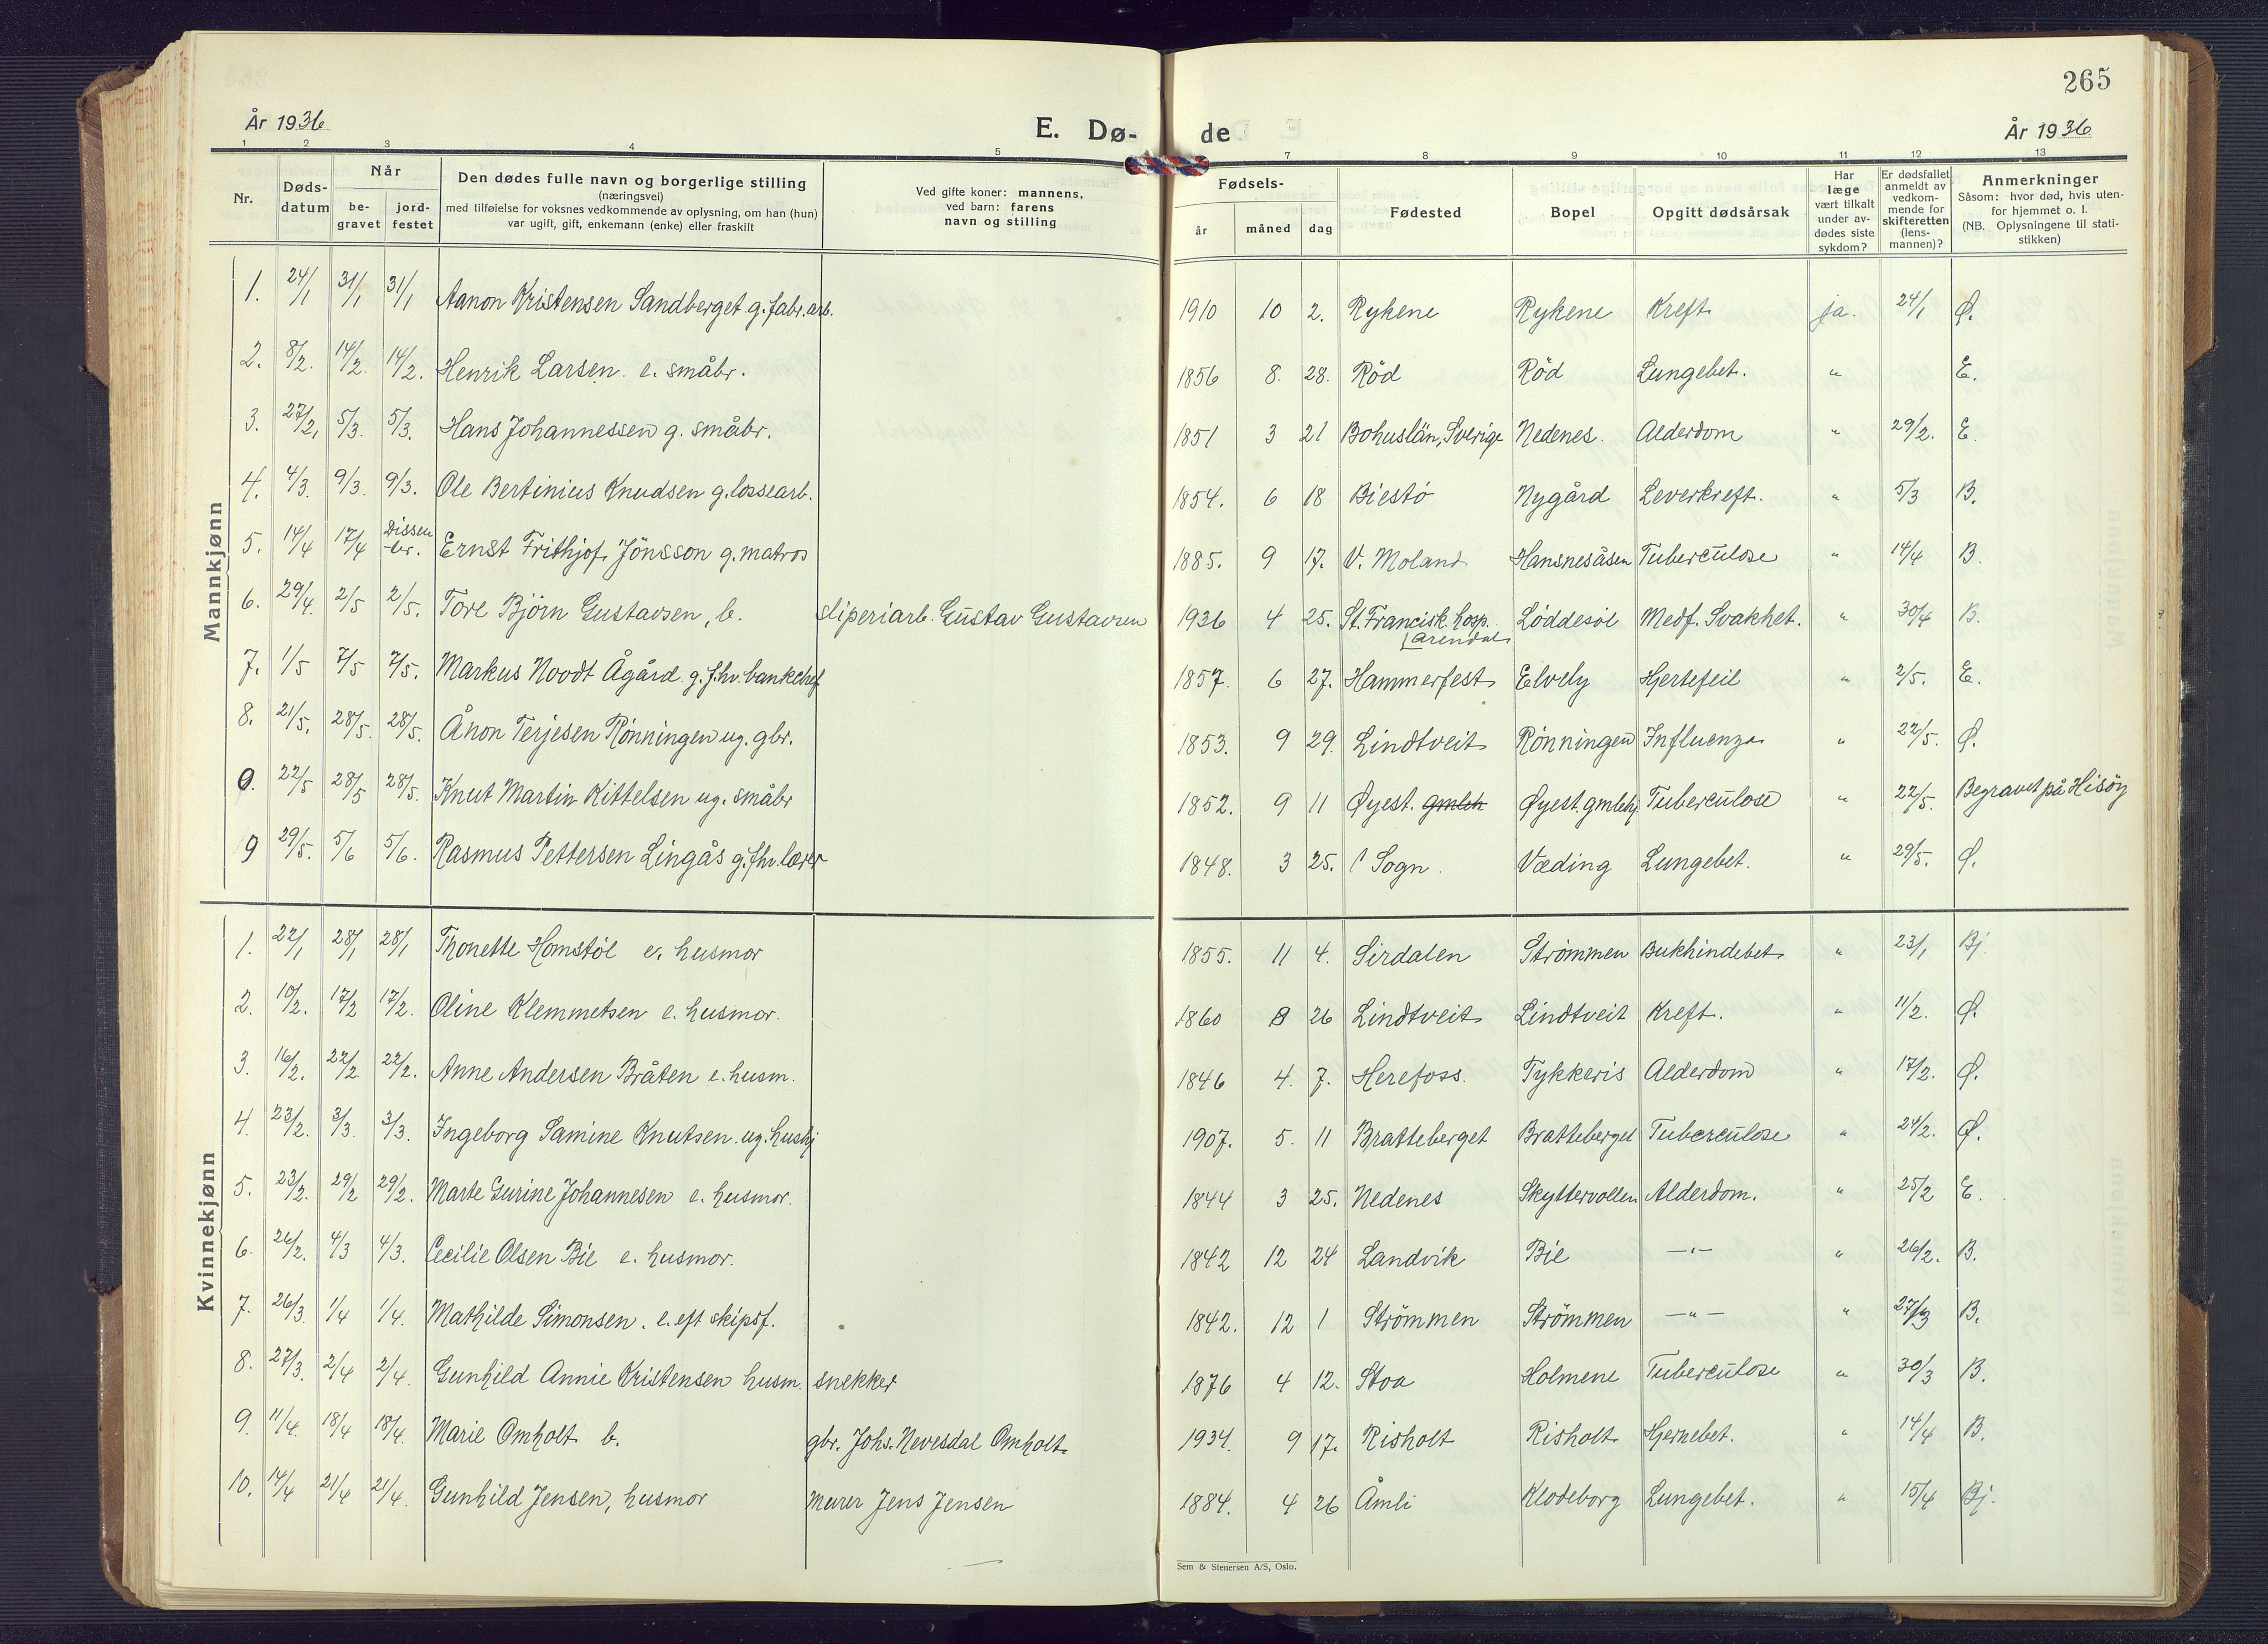 265
År 1936
E. Dø-
de
År 1936
1 2 3 4 5 7 8 9 10 11 12 13
Nr.
Døds-
datum
Når
be-
gravet
jord-
festet
Den dødes fulle navn og borgerlige stilling
(næringsvei)
med tilføielse for voksnes vedkommende av oplysning, om han (hun)
var ugift, gift, enkemann (enke) eller fraskilt
Ved gifte koner: mannens,
ved barn: farens
navn og stilling
Fødsels-
år måned dag
Fødested
Bopel
Opgitt dødsårsak
Har
læge
vært tilkalt
under av-
dødes siste
sykdom?
Er dødsfallet
anmeldt av
vedkom-
mende for
skifteretten
(lens-
mannen)?
Anmerkninger
Såsom: hvor død, hvis uten-
for hjemmet o. l.
(NB. Oplysningene til stati-
stikken)
Mannkjønn
1. 24/1 31/1 31/1 Aanon Kristensen Sandberget g. fabr.arb. 1910 10 2. Rykene Rykene Kreft ja. 24/1 Ø.
2. 8/2. 14/2. 14/2. Henrik Larsen e. småbr. 1856 8. 28. Röd Röd Lungebet. " E.
3. 27/2. 5/3. 5/3. Hans Johannessen g. småbr. 1851 3 21 Bohuslän, Sverige Nedenes. Alderdom " 29/2. E.
4. 4/3. 9/3. 9/3. Ole Bertinius Knudsen g. lossearb. 1854. 6 18 Biestö Nygård Leverkreft. " 5/3 B.
5. 14/4 17/4 Dissen
-ter. Ernst Frithjof Jönsson g. matros 1885. 9 17. V. Moland Hansnesåsen Tuberculose " 14/4 B.
6. 29/4. 2/5 2/5. Tore Björn Gustavsen, b. sliperiarb. Gustav Gustavsen 1936 4 25. St. Francisk. hosp. Löddesöl Medf. Svakhet. " 30/4 B.
Arendal
7. 1/5 7/5 7/5. Markus Noodt Ågård. g. fhv. bankchef 1857. 6 27. Hammerfest Elvely Hjertefeil " 2/5. E.
8. 21/5. 28/5. 28/5. Ånon Terjesen Rönningen ug. gbr. 1853. 9 29. Lindtveit Rönningen Influenza " 22/5. Ø.
0. 22/5 28/5 28/5. Knut Martin Kittelsen ug. småbr 1852. 9 11 Øyest. gmleh Øyest. gmlehj. Tuberculose " 22/5. Begravet på Hisöy
9 29/5. 5/6 5/6. Rasmus Pettersen Lingås g. fhv. lærer 1848. 3 25. i Sogn. Væding Lungebet. " 29/5. Ø.
Kvinnekjønn
1. 22/1 28/1 28/1 Thonette Homstöl e. husmor 1855. 11 4. Sirdalen Strömmen Bukhindebet. " 23/1 Bj
2. 10/2. 17/2 17/2. Oline Klemmetsen e. husmor. 1860 8 26 Lindtveit Lindtveit Kreft. " 11/2. Ø.
3. 16/2. 22/2. 22/2. Anne Andersen Bråten e. husm. 1846 4. 7. Herefoss. Tykkeris Alderdom " 17/2. Ø.
4. 23/2. 3/3. 3/3. Ingeborg Samine Knutsen ug. hushj 1907. 5. 11 Bratteberget Bratteberget Tuberculose " 24/2. Ø.
5. 23/2. 29/2 29/2. Marte Gurine Johannesen e. husmor. 1844 3 25. Nedenes Skyttervollen Alderdom. " 25/2 E.
6. 26/2. 4/3 4/3. Cecilie Olsen Bie e. husmor. 1842 12 24 Landvik Bie —"— " 26/2. B.
7. 26/3. 1/4 1/4. Mathilde Simonsen. e. eft skipsf. 1842. 12 1 Strömmen Strömmen —"— " 27/3 B.
8. 27/3. 2/4 2/4. Gunhild Annie Kristensen husm. snekker 1876 4 12. Stoa Holmene Tuberculose " 30/3 B.
9. 11/4. 18/4 18/4. Marie Omholt b. gbr. Johs. Nevesdal Omholt 1934. 9 17. Risholt Risholt Hjernebet. " 14/4 B.
10. 14/4 21/4 21/4. Gunhild Jensen, husmor murer Jens Jensen 1884. 4 26 Åmli Klodeborg Lungebet. " 15/4 Bj.
Sem & Stenersen A/S, Oslo.